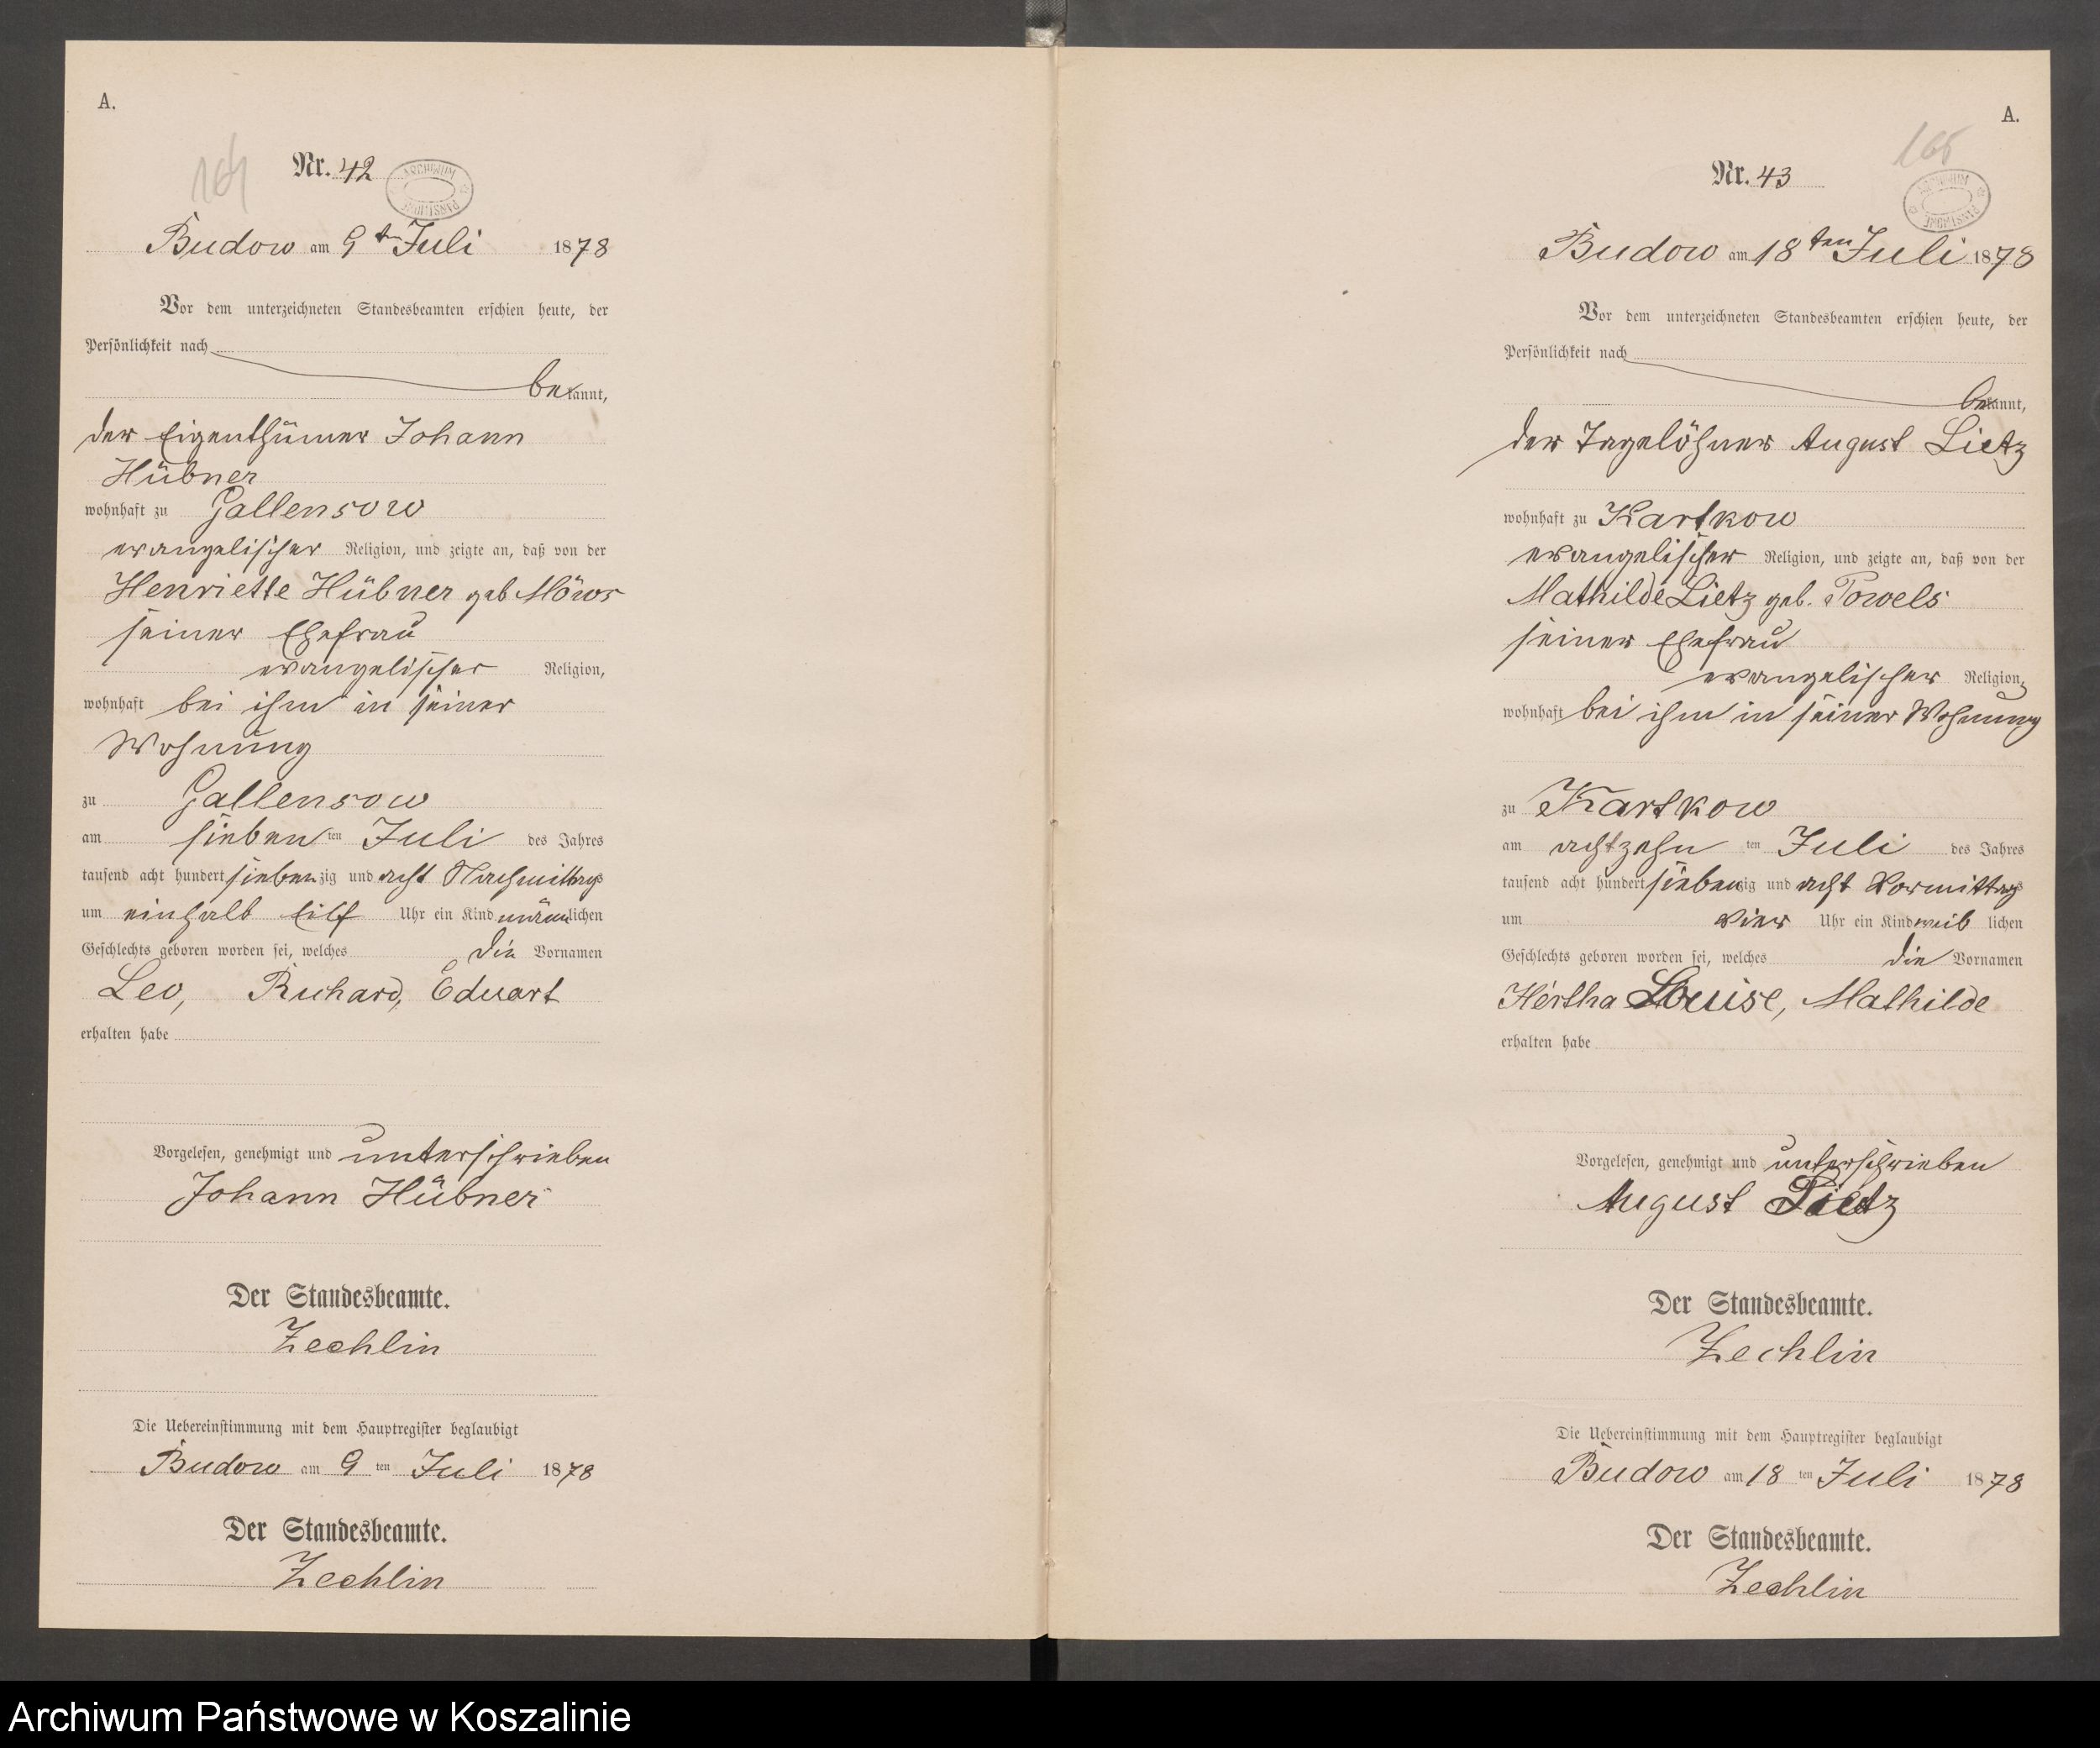 A.
164
Nr. 42
ARCHIWUM PAŃSTWOWE
Budow am 9ten Juli 1878
Vor dem unterzeichneten Standesbeamten erschien heute, der
Persönlichkeit nach
bekannt,
der Eigenthümer Johann
Hübner
wohnhaft zu Gallensow
evangelischer Religion, und zeigte an, daß von der
Henriette Hübner geb Möws
seiner Ehefrau
evangelischer Religion,
wohnhaft bei ihm in seiner
Wohnung
zu Gallensow
am sieben ten Juli des Jahres
tausend acht hundert siebenzig und acht Nachmittags
um einhalb Eilf Uhr ein Kind männlichen
Geschlechts geboren worden sei, welches die Vornamen
Leo, Richard, Eduart
erhalten habe
Vorgelesen, genehmigt und unterschrieben
Johann Hübner
Der Standesbeamte.
Zechlin
Die Uebereinstimmung mit dem Hauptregister beglaubigt
Budow am 9 ten Juli 1878
Der Standesbeamte.
Zechlin
A.
165
Nr. 43
ARCHIWUM PAŃSTWOWE
Budow am 18ten Juli 1878
Vor dem unterzeichneten Standesbeamten erschien heute, der
Persönlichkeit nach
bekannt,
der Tagelöhner August Lietz
wohnhaft zu Kartkow
evangelischer Religion, und zeigte an, daß von der
Mathilde Lietz geb. Powels
seiner Ehefrau
evangelischer Religion,
wohnhaft bei ihm in seiner Wohnung
zu Kartkow
am achtzehn ten Juli des Jahres
tausend acht hundert siebenzig und acht Vormittags
um vier Uhr ein Kind weiblichen
Geschlechts geboren worden sei, welches die Vornamen
Hertha Louise, Mathilde
erhalten habe
Vorgelesen, genehmigt und unterschrieben
August Lietz
Der Standesbeamte.
Zechlin
Die Uebereinstimmung mit dem Hauptregister beglaubigt
Budow am 18 ten Juli 1878
Der Standesbeamte.
Zechlin
Archiwum Państwowe w Koszalinie